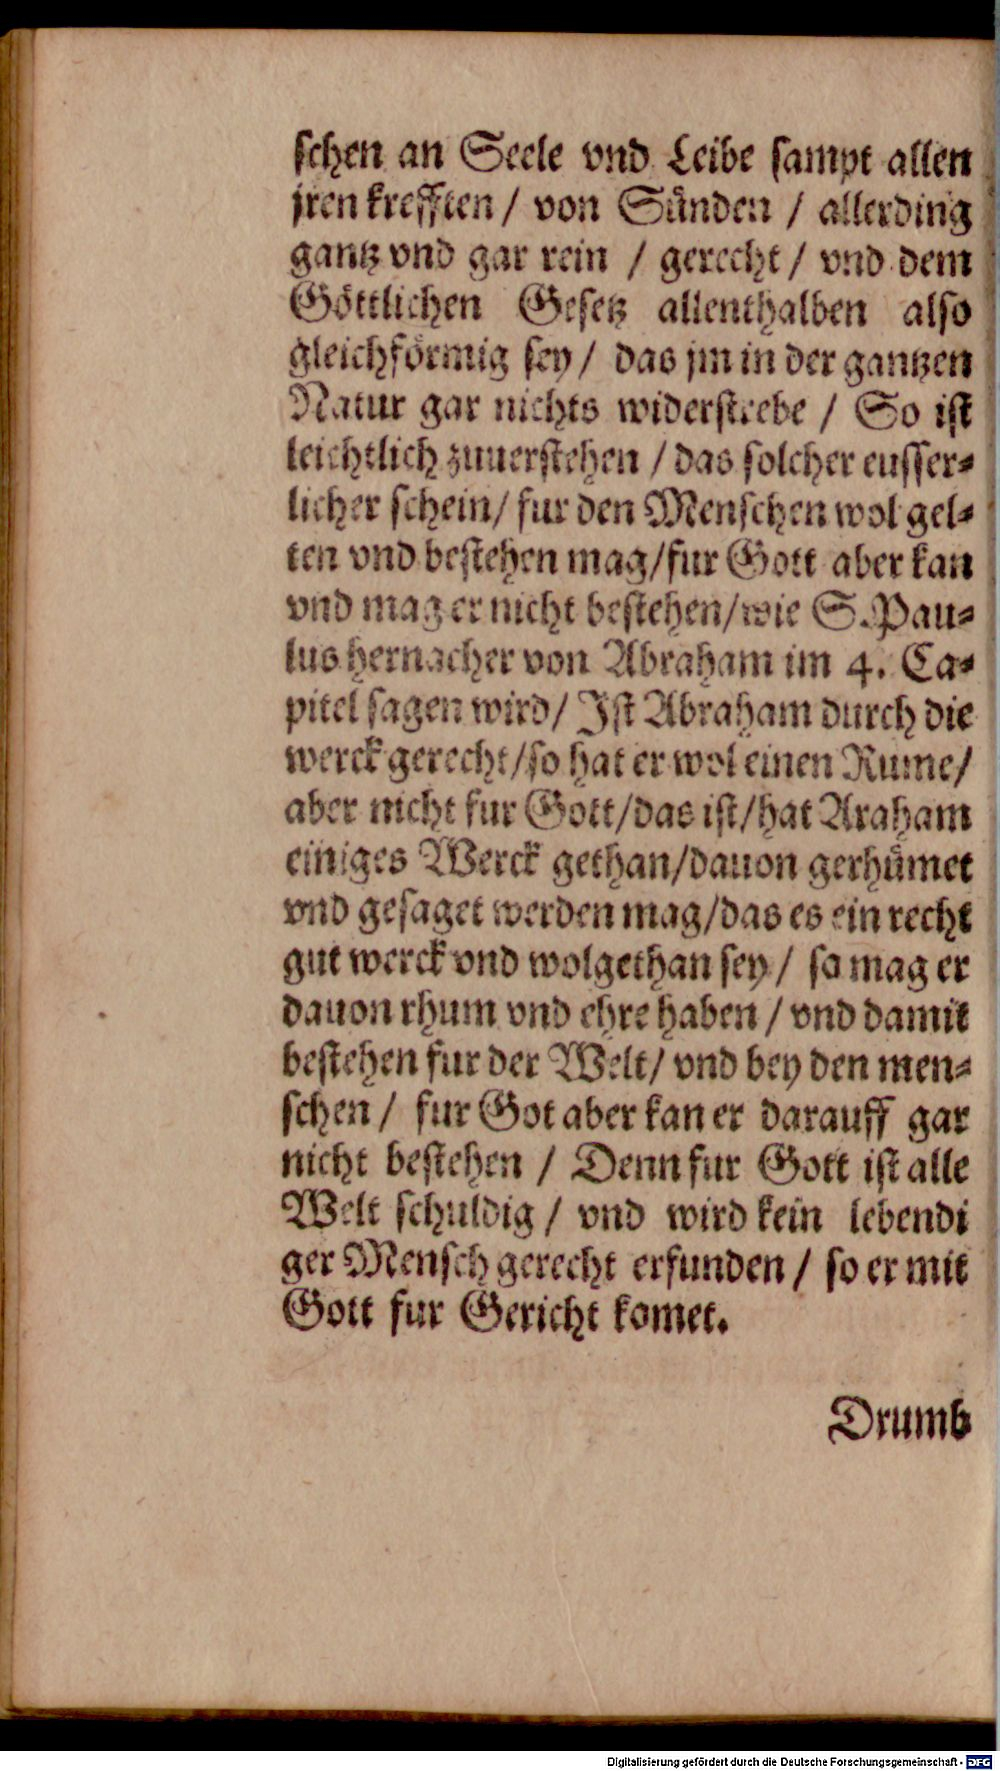 schen an Seele vnd Leibe sampt allen
jren krefften / von Sünden / allerding
gantz vnd gar rein / gerecht / vnd dem
Göttlichen Gesetz allenthalben also
gleichförmig sey / das jm in der gantzen
Natur gar nichts widerstrebe / So ist
leichtlich zuuerstehen / das solcher eusser-
licher schein / fur den Menschen wol gel-
ten vnd bestehen mag / fur Gott aber kan
vnd mag er nicht bestehen / wie S. Pau-
lus hernacher von Abraham im 4. Ca-
pitel sagen wird / Ist Abraham durch die
werck gerecht / so hat er wol einen Rume /
aber nicht fur Gott / das ist / hat Araham
einiges Werck gethan / dauon gerhümet
vnd gesaget werden mag / das es ein recht
gut werck vnd wolgethan sey / sa mag er
dauon rhum vnd ehre haben / vnd damit
bestehen fur der Welt / vnd bey den men-
schen / fur Got aber kan er darauff gar
nicht bestehen / Denn fur Gott ist alle
Welt schuldig / vnd wird kein lebendi
ger Mensch gerecht erfunden / so er mit
Gott fur Gericht komet.
Drumb
Digitalisierung gefördert durch die Deutsche Forschungsgemeinschaft - DFG